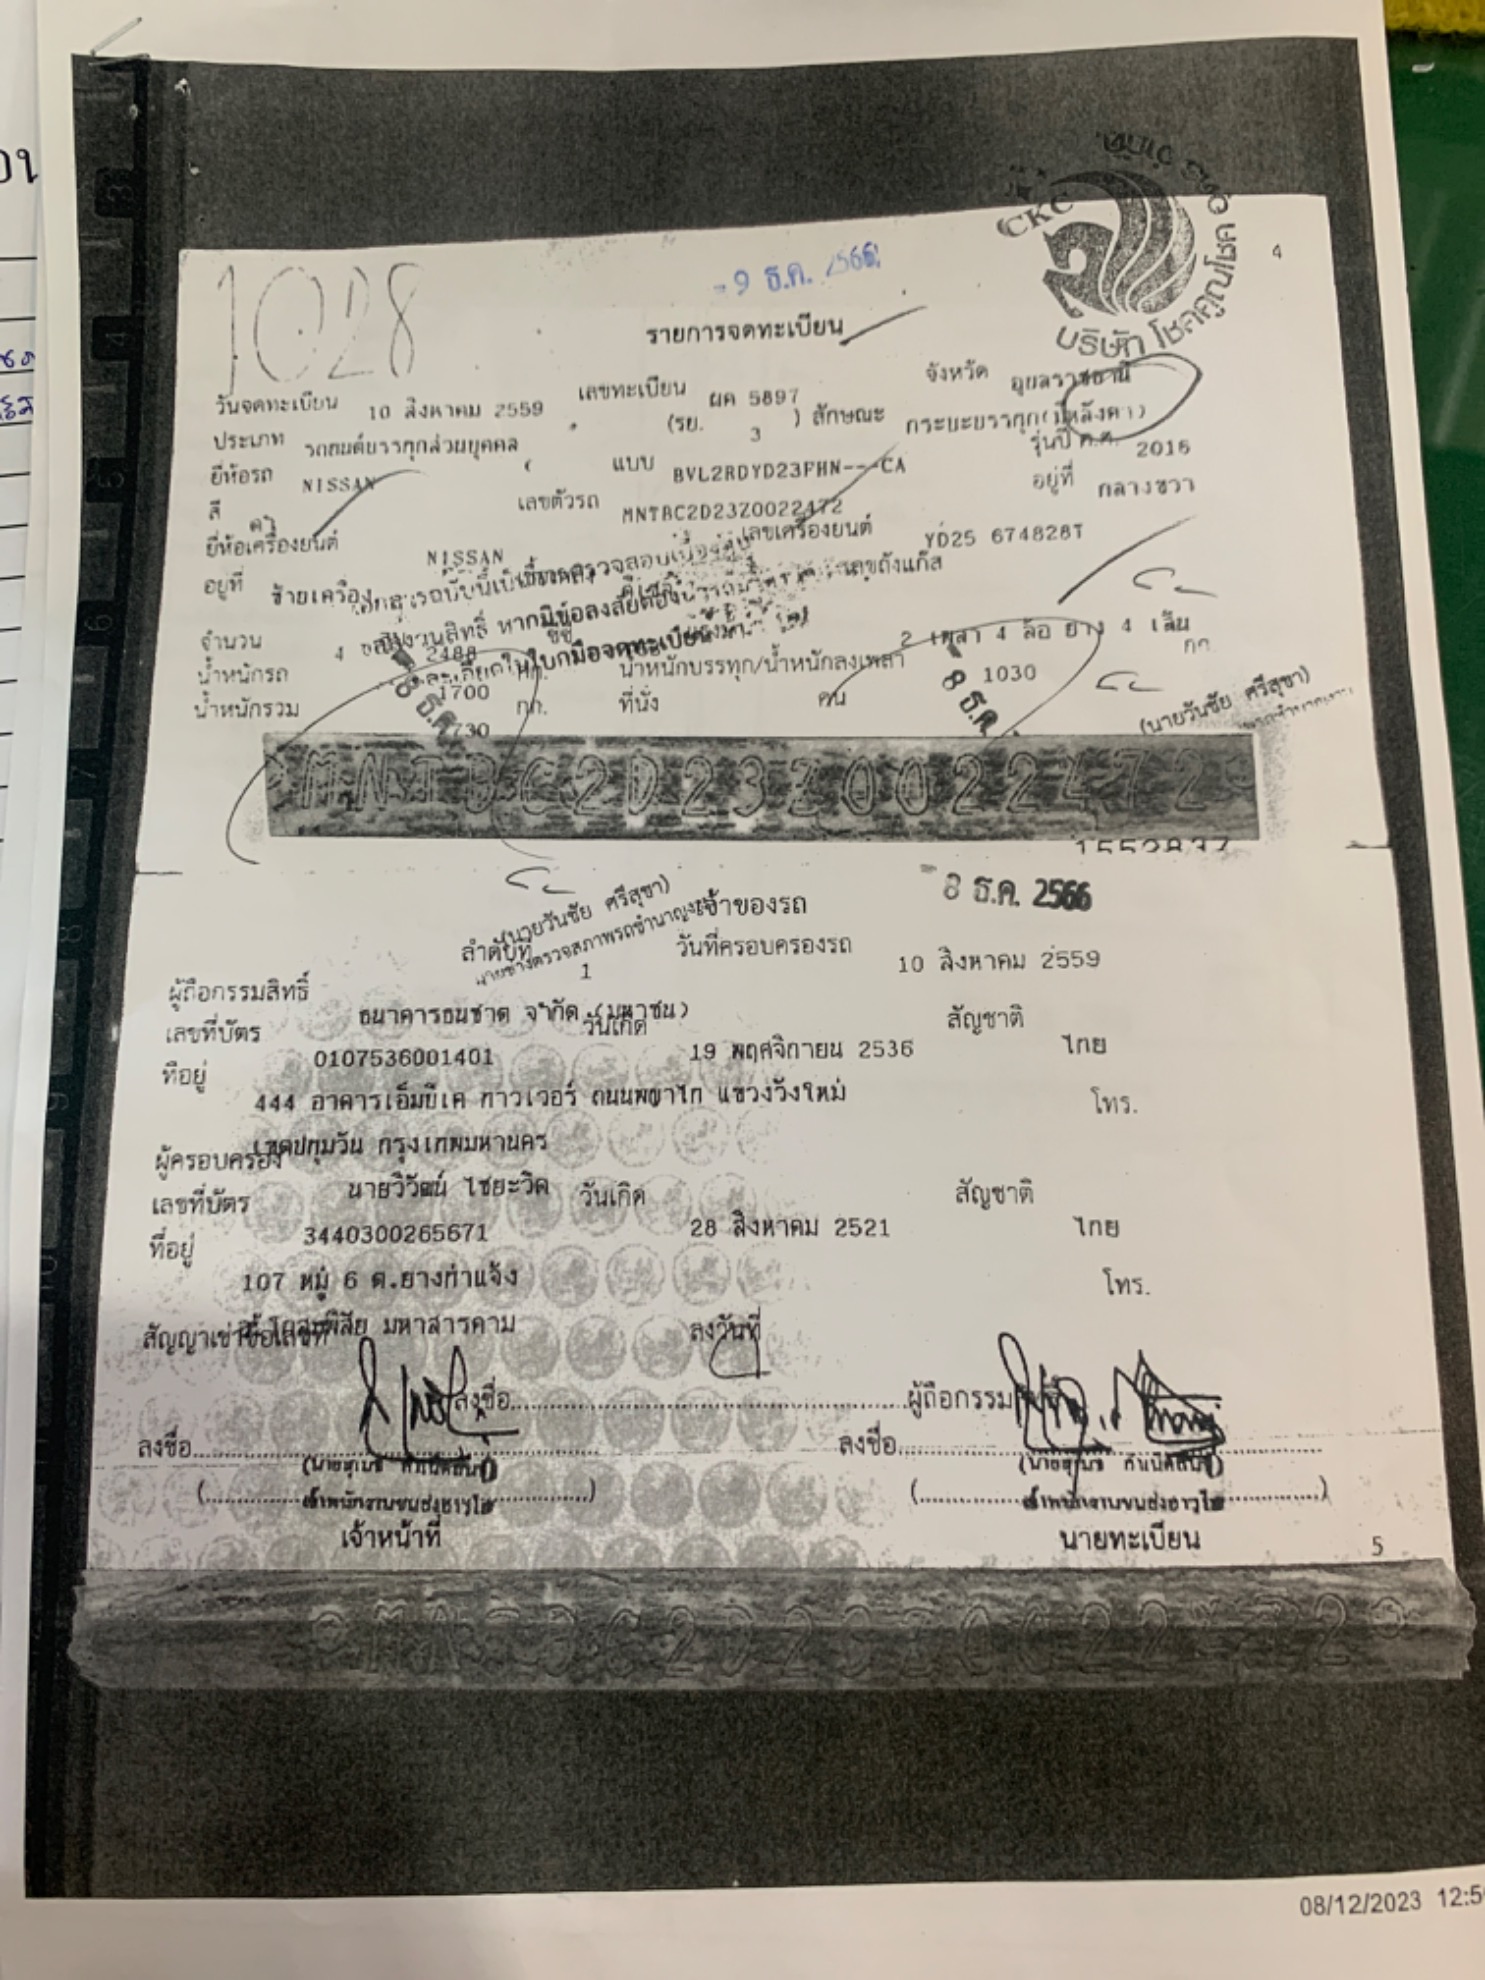 1028
- 9 ธ.ค. 2566
CKC
บริษัท โชคคูณโชค
จำกัด
4
รายการจดทะเบียน
วันจดทะเบียน 10 สิงหาคม 2559 เลขทะเบียน ผค 5897 จังหวัด อุบลราชธานี
ประเภท รถยนต์บรรทุกส่วนบุคคล (รย. 3 ) ลักษณะ กระบะบรรทุก(มีหลังคา)
ยี่ห้อรถ NISSAN แบบ BVL2RDYD23FHN---CA รุ่นปี ค.ศ. 2016
สี ดำ เลขตัวรถ MNTBC2D23Z0022472 อยู่ที่ กลางขวา
ยี่ห้อเครื่องยนต์ NISSAN เลขเครื่องยนต์ YD25 674828T
อยู่ที่ ซ้ายเครื่อง เลขถังแก๊ส
จำนวน 4 2488 ซีซี 2 เพลา 4 ล้อ ยาง 4 เส้น
น้ำหนักรถ 1700 กก. น้ำหนักบรรทุก/น้ำหนักลงเพลา 1030 กก.
น้ำหนักรวม 2730 กก. ที่นั่ง คน
หากมีข้อลงสัยต้อง
8 ธ.ค.
8 ธ.ค.
(นายวันชัย ศรีสุขา)
MNTBC2D23Z0022472
8 ธ.ค. 2566
(นายวันชัย ศรีสุขา)
นายช่างตรวจสภาพรถชำนาญงาน
เจ้าของรถ
ลำดับที่ 1 วันที่ครอบครองรถ 10 สิงหาคม 2559
ผู้ถือกรรมสิทธิ์ ธนาคารธนชาต จำกัด (มหาชน)
เลขที่บัตร 0107536001401 วันเกิด 19 พฤศจิกายน 2536 สัญชาติ ไทย
ที่อยู่ 444 อาคารเอ็มบีเค ทาวเวอร์ ถนนพญาไท แขวงวังใหม่ โทร.
เขตปทุมวัน กรุงเทพมหานคร
ผู้ครอบครอง นายวิวัฒน์ ไชยะวิด
เลขที่บัตร 3440300265671 วันเกิด 28 สิงหาคม 2521 สัญชาติ ไทย
ที่อยู่ 107 หมู่ 6 ต.ยางท่าแจ้ง โทร.
มหาสารคาม
สัญญาเช่าซื้อเลขที่ ลงวันที่
ลงชื่อ ผู้ถือกรรมสิทธิ์
ลงชื่อ ลงชื่อ
เจ้าพนักงานขนส่งอาวุโส เจ้าพนักงานขนส่งอาวุโส
เจ้าหน้าที่ นายทะเบียน
5
08/12/2023 12:5